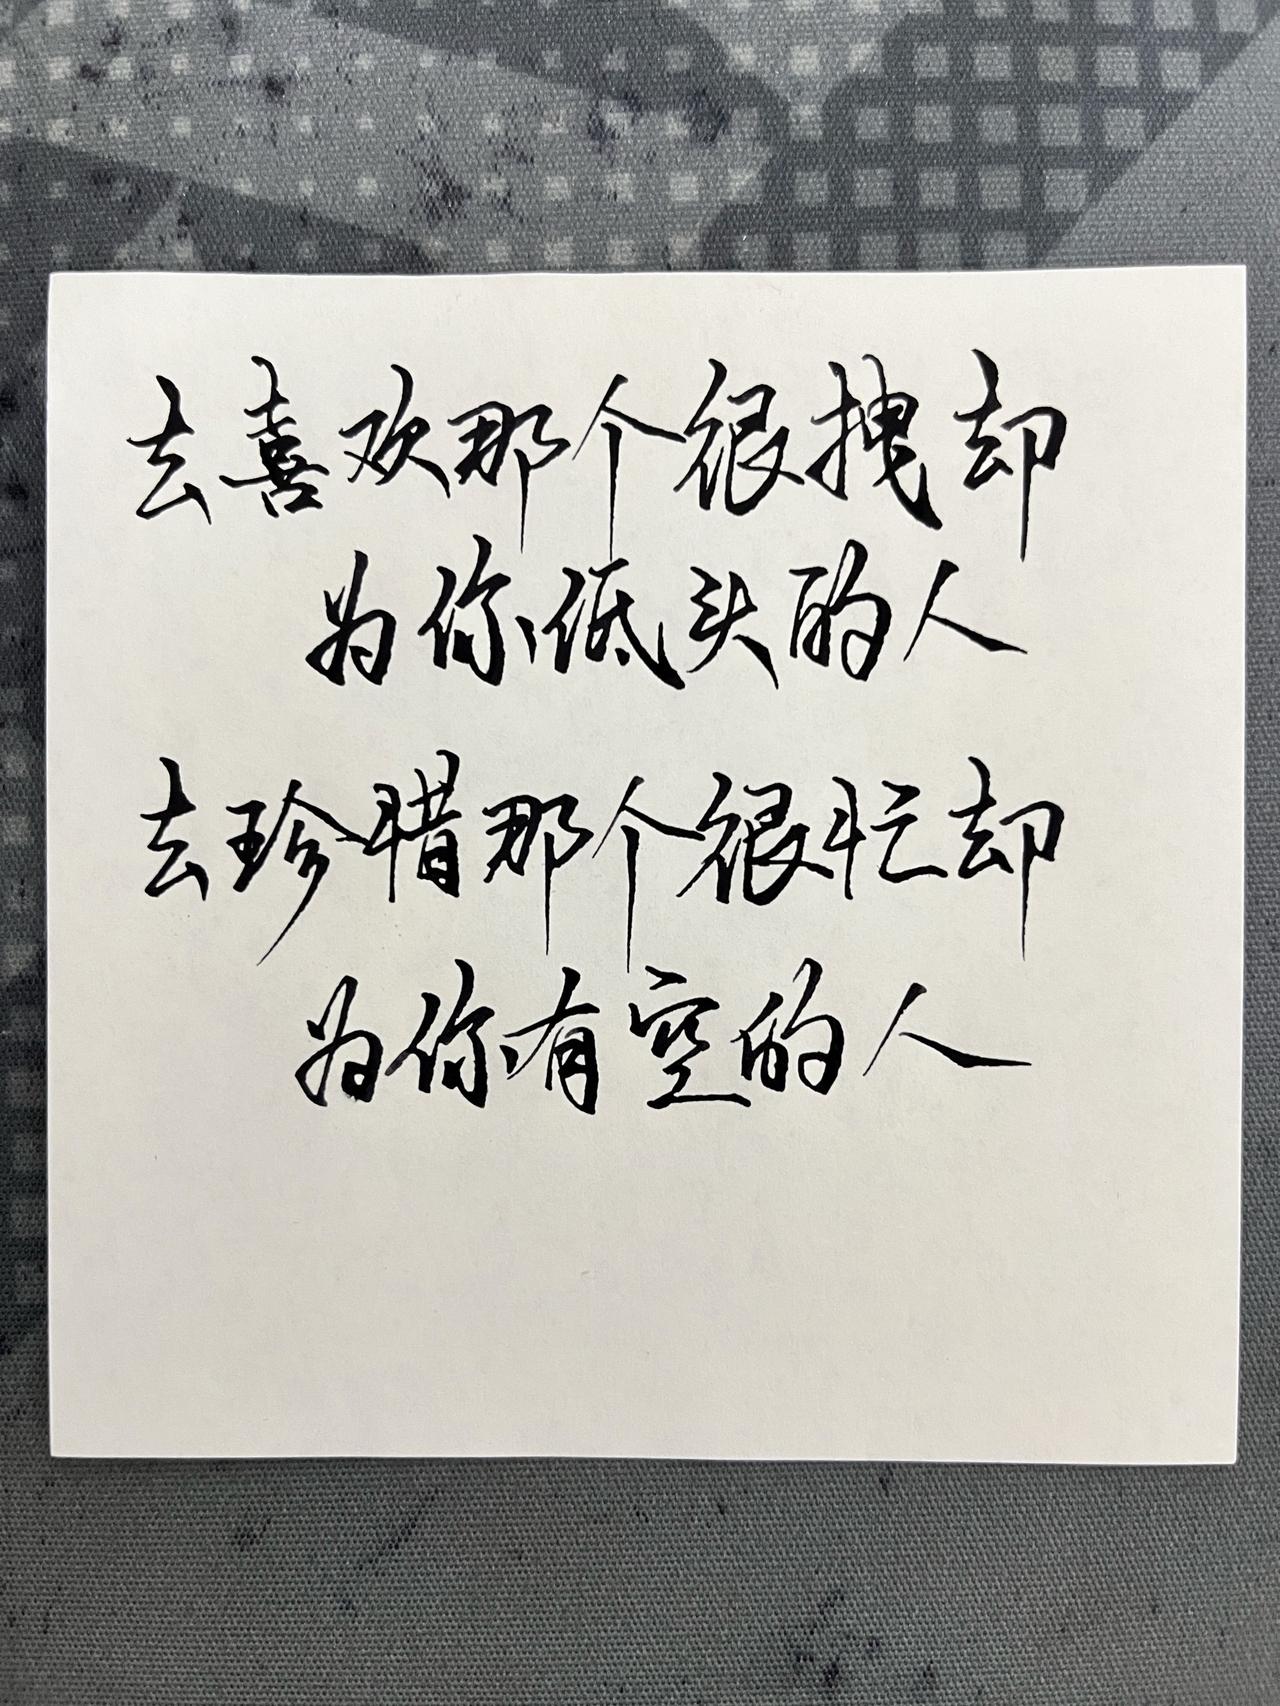 去喜欢那个很拽却
为你低头的人
去珍惜那个很忙却
为你有空的人